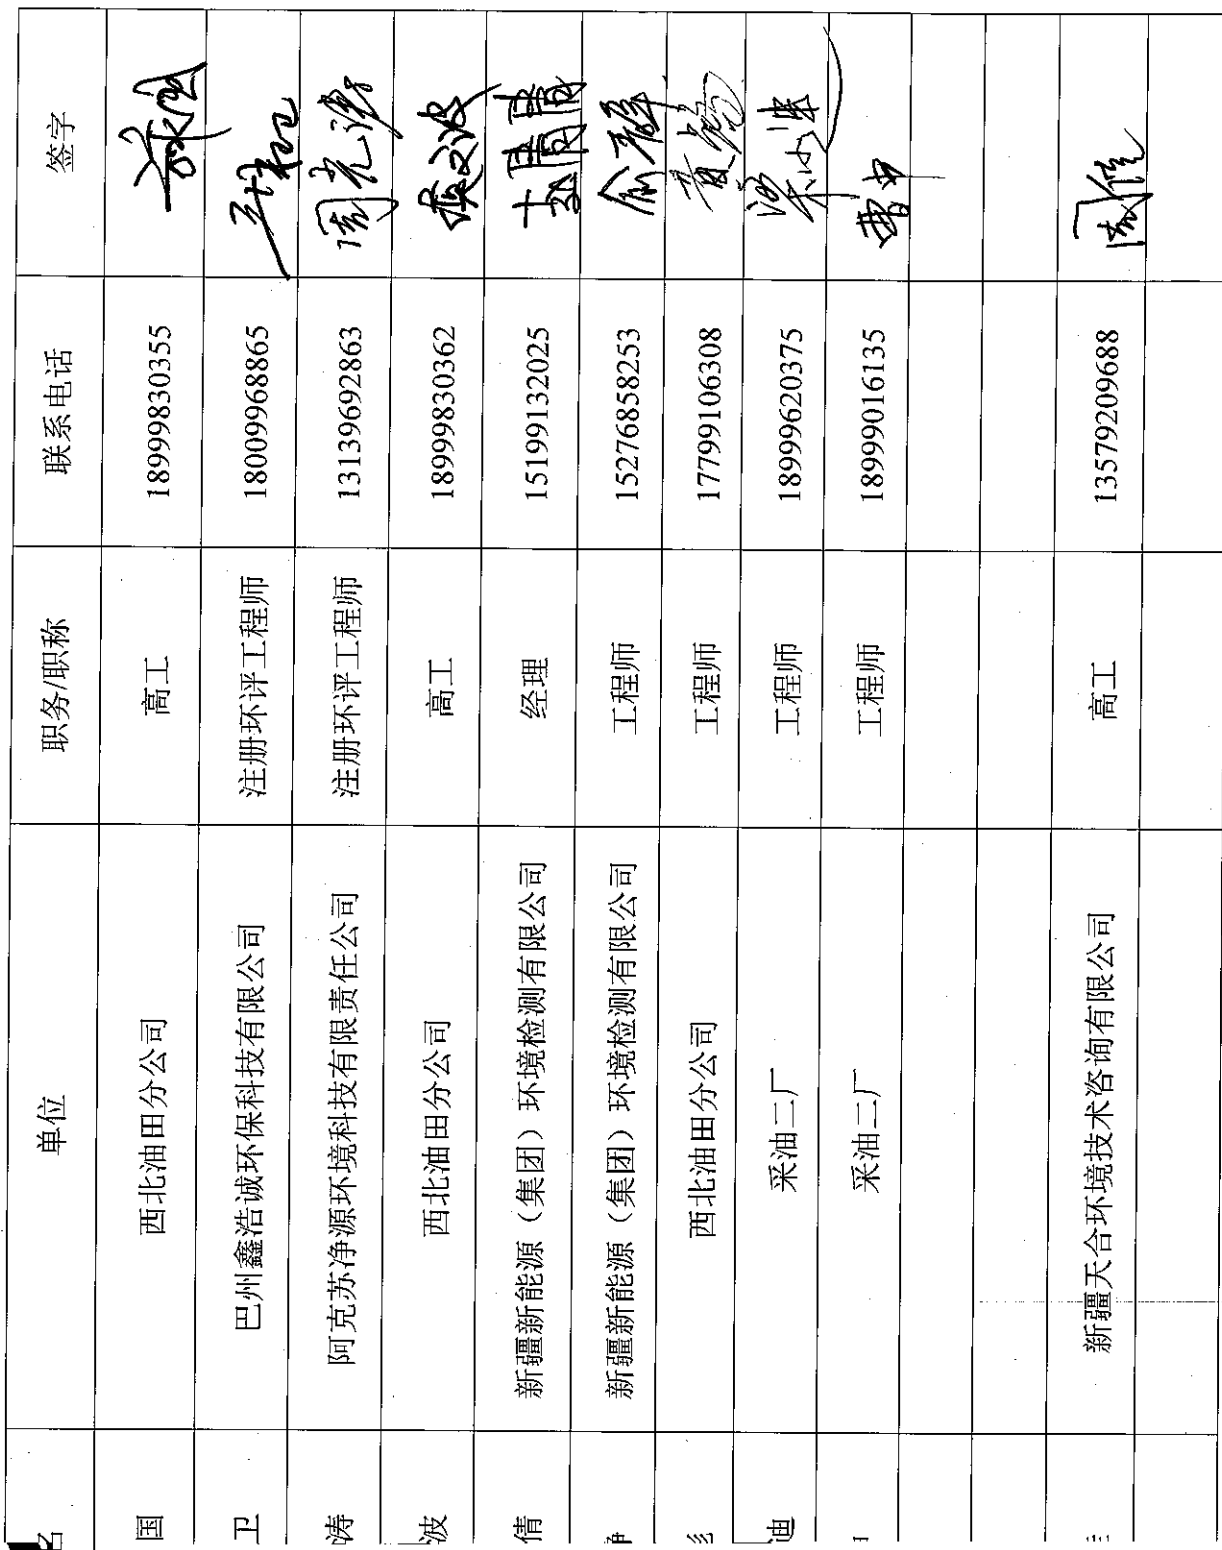 名 单位 职务/职称 联系电话 签字
国 西北油田分公司 高工 18999830355
卫 巴州鑫浩诚环保科技有限公司 注册环评工程师 18009968865
涛 阿克苏净源环境科技有限责任公司 注册环评工程师 13139692863 周光涛
波 西北油田分公司 高工 18999830362
倩 新疆新能源（集团）环境检测有限公司 经理 15199132025
新疆新能源（集团）环境检测有限公司 工程师 15276858253
西北油田分公司 工程师 17799106308
迪 采油二厂 工程师 18999620375
采油二厂 工程师 18999016135
新疆天合环境技术咨询有限公司 高工 13579209688